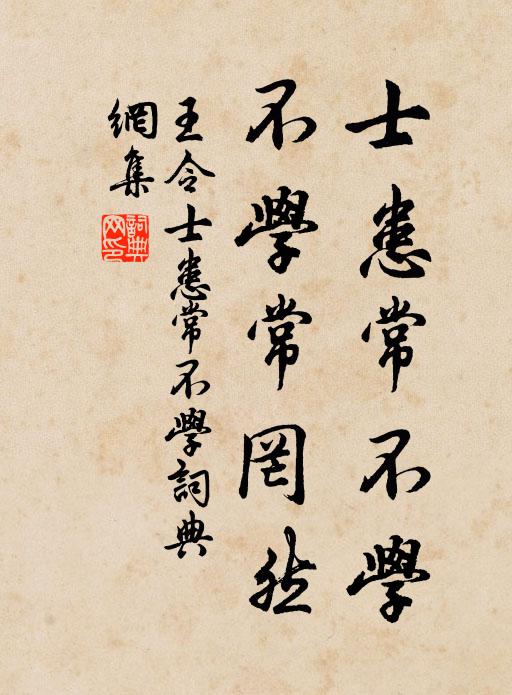 士患常不學
不學常罔然
王令士患常不學詞典
網集
詞典網印